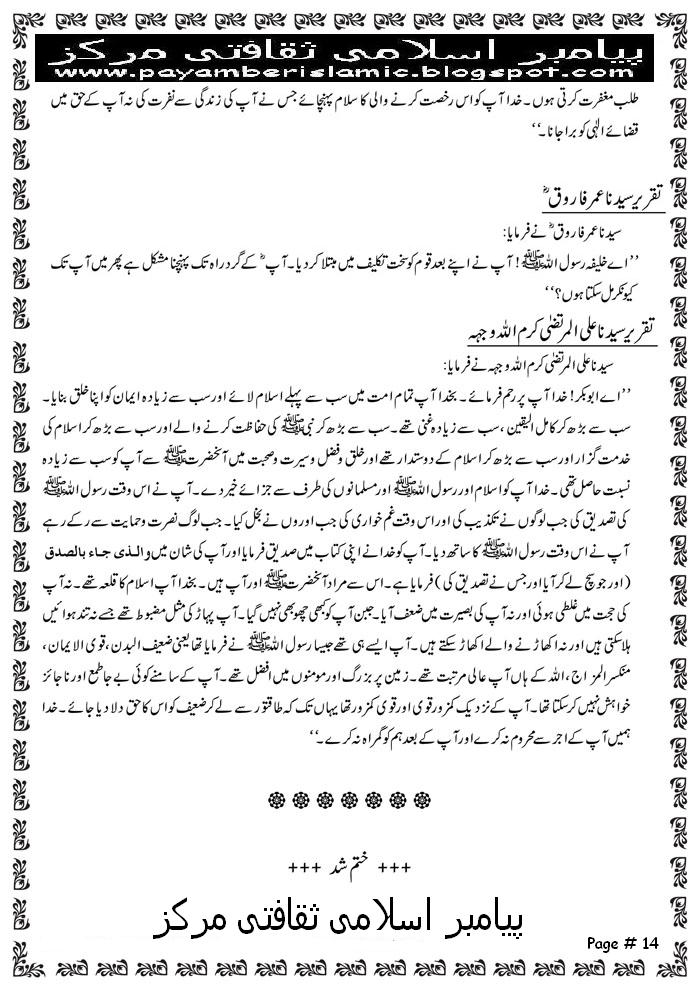 پیامبر اسلامی ثقافتی مرکز
www.payamberislamic.blogspot.com
طلب مغفرت کرتی ہوں۔ خدا آپ کو اس رخصت کرنے والی کا سلام پہنچائے جس نے آپ کی زندگی سے نفرت کی نہ آپ کے حق میں
قضائے الٰہی کو برا جانا۔‘‘
تقریر سیدنا عمر فاروقؓ
سیدنا عمر فاروقؓ نے فرمایا:
’’اے خلیفہ رسول اللہﷺ! آپ نے اپنے بعد قوم کو سخت تکلیف میں مبتلا کر دیا۔ آپؓ کے گرد راہ تک پہنچنا مشکل ہے پھر میں آپ تک
کیونکر مل سکتا ہوں؟‘‘
تقریر سیدنا علی المرتضیٰ کرم اللہ وجہہ
سیدنا علی المرتضیٰ کرم اللہ وجہہ نے فرمایا:
’’اے ابوبکر! خدا آپ پر رحم فرمائے۔ بخدا آپ تمام امت میں سب سے پہلے اسلام لائے اور سب سے زیادہ ایمان کو اپنا خلق بنایا۔
سب سے بڑھ کر کامل الیقین، سب سے زیادہ غنی تھے۔ سب سے بڑھ کر نبیﷺ کی حفاظت کرنے والے اور سب سے بڑھ کر اسلام کی
خدمت گزار اور سب سے بڑھ کر اسلام کے دوستدار تھے اور خلق و فضل و سیرت و صحبت میں آنحضرتﷺ سے آپ کو سب سے زیادہ
نسبت حاصل تھی۔ خدا آپ کو اسلام اور رسول اللہﷺ اور مسلمانوں کی طرف سے جزائے خیر دے۔ آپ نے اس وقت رسول اللہﷺ
کی تصدیق کی جب لوگوں نے تکذیب کی اور اس وقت غم خواری کی جب اوروں نے بخل کیا۔ جب لوگ نصرت و حمایت سے رکے رہے
آپ نے اس وقت رسول اللہﷺ کا ساتھ دیا۔ آپ کو خدا نے اپنی کتاب میں صدیق فرمایا اور آپ کی شان میں والذی جاء بالصدق
(اور جو سچ لے کر آیا اور جس نے تصدیق کی) فرمایا ہے۔ اس سے مراد آنحضرتﷺ اور آپ ہیں۔ بخدا آپ اسلام کا قلعہ تھے۔ نہ آپ
کی حجت میں غلطی ہوئی اور نہ آپ کی بصیرت میں ضعف آیا۔ جبن آپ کو کبھی چھو بھی نہیں گیا۔ آپ پہاڑ کی مثل مضبوط تھے جسے نہ تند ہوائیں
ہلا سکتی ہیں اور نہ اکھاڑنے والے اکھاڑ سکتے ہیں۔ آپ ایسے ہی تھے جیسا رسول اللہﷺ نے فرمایا تھا یعنی ضعیف البدن، قوی الایمان،
منکسر المزاج، اللہ کے ہاں آپ عالی مرتبت تھے۔ زمین پر بزرگ اور مومنوں میں افضل تھے۔ آپ کے سامنے کوئی بے جا طمع اور ناجائز
خواہش نہیں کر سکتا تھا۔ آپ کے نزدیک کمزور قوی اور قوی کمزور تھا یہاں تک کہ طاقتور سے لے کر ضعیف کو اس کا حق دلا دیا جائے۔ خدا
ہمیں آپ کے اجر سے محروم نہ کرے اور آپ کے بعد ہم کو گمراہ نہ کرے۔‘‘
+++ ختم شد +++
پیامبر اسلامی ثقافتی مرکز
Page # 14